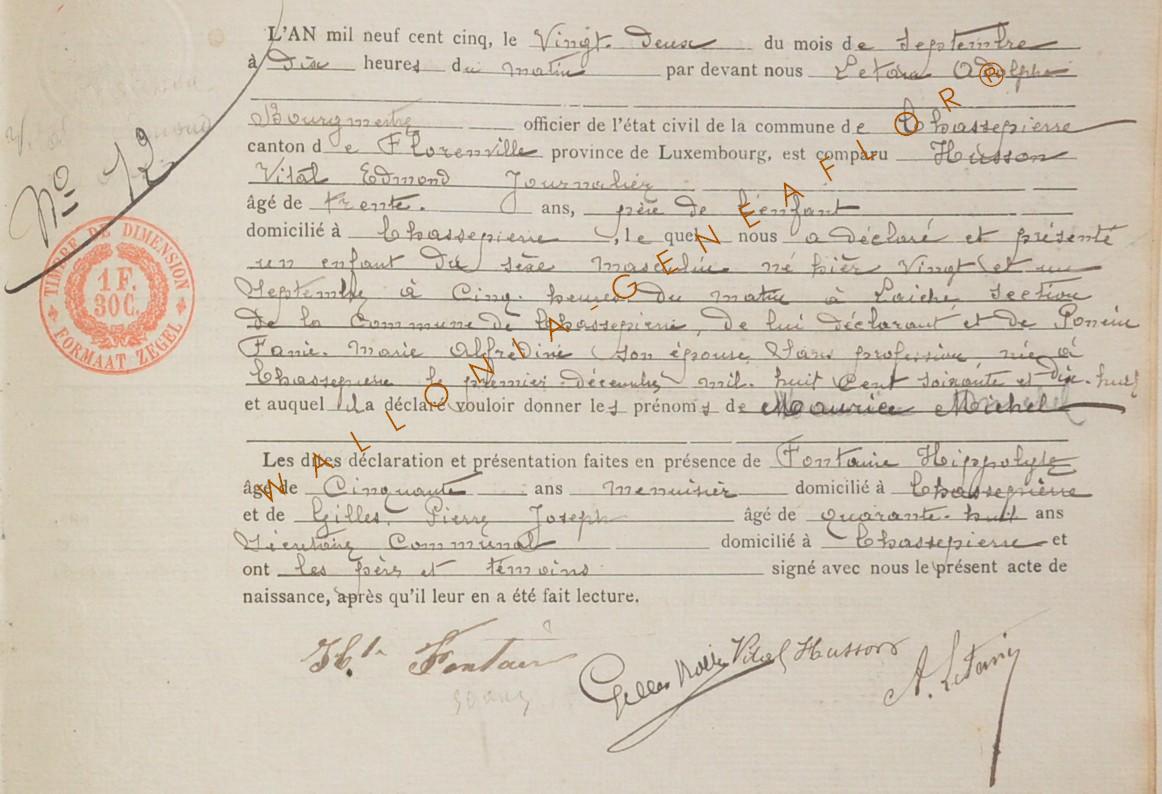 L'AN mil neuf cent cinq, le Vingt-deux du mois de Septembre
à Dix heures du matin par devant nous Adolphe
Bourgmestre officier de l'état civil de la commune de Chassepierre
canton de Florenville province de Luxembourg, est comparu Husson
Vital Edmond Journalier
âgé de trente. ans, père de l'enfant
domicilié à Chassepierre, lequel nous a déclaré et présenté
un enfant du sexe masculin né hier Vingt et un
Septembre à Cinq heures du matin à Laiche, section
de la Commune de Chassepierre, de lui déclarant et de Poncin
Fanie Marie Alfredine son épouse, sans profession, née à
Chassepierre le premier décembre mil huit Cent soixante et dix-huit
et auquel il a déclaré vouloir donner les prénoms de Maurice Michel
Les dites déclaration et présentation faites en présence de Fontaine Hippolyte
âgé de Cinquante ans menuisier domicilié à Chassepierre
et de Gilles, Pierre Joseph âgé de quarante-huit ans
Sécrétaire Communal domicilié à Chassepierre et
ont les père et témoins signé avec nous le présent acte de
naissance, après qu'il leur en a été fait lecture.
No 12
TIMBRE DE DIMENSION
1 F.
30C.
FORMAAT ZEGEL
WALLONIA-GENEAFLOR®
Fontain
Gilles Vital Husson